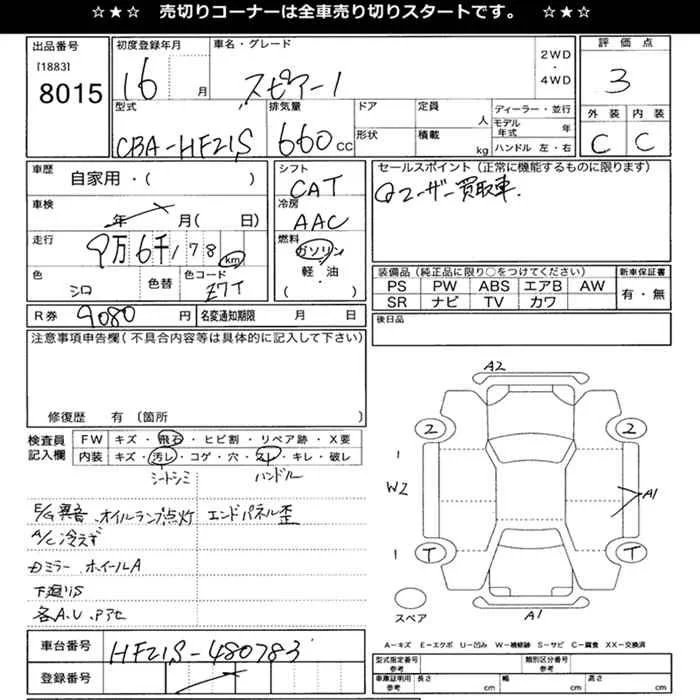 ☆★☆ 売切りコーナーは全車売り切りスタートです。 ☆★☆
出品番号
[1883]
8015
初度登録年月
16 月
車名・グレード
スピアーノ
2WD
・
4WD
評価点
3
外装 内装
C C
型式
CBA-HF21S
排気量
660 cc
ドア
形状
定員
人
積載
kg
ディーラー・並行
モデル年式 年
ハンドル 左・右
車歴
自家用・( )
車検
年 月( 日)
走行
9万6千178 km
色
シロ
色替
色コード
Z7T
シフト
CAT
冷房
AAC
燃料
ガソリン
軽・油
( )
セールスポイント(正常に機能するものに限ります)
ユーザー買取車.
装備品(純正品に限り○をつけてください)
PS PW ABS エアB AW
SR ナビ TV カワ
新車保証書
有・無
後日品
R券 9080 円
名変通知期限 月 日
注意事項申告欄(不具合内容等は具体的に記入して下さい)
修復歴 有(箇所
検査員記入欄
FW キズ・飛石・ヒビ割・リペア跡・X要
内装 キズ・汚レ・コゲ・穴・スレ・キレ・破レ
シートシミ ハンドル
E/G異音、オイルランプ点灯 エンドパネル歪
A/C冷えず
カミラー、ホイールA
下廻りS
各A、U、アセ
A2
2 2
1
W2
A1
1
T T
スペア
A1
A-キズ E-エクボ U-凹み W-補修跡 S-サビ C-腐食 XX-交換済
車台番号
HF21S-480783
登録番号
型式指定番号
参考
類別区分番号
参考
車庫証明用
参考
長さ cm 幅 cm 高さ cm